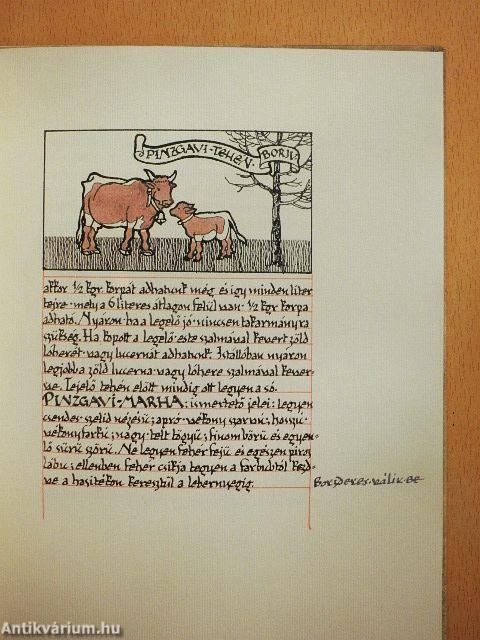 PINZGAVI·TEHÉN BORJÚ
akkor ½ kgr. korpát adhatunk még és igy minden liter
tejre·mely a 6 literes átlagon felül van·½ kgr korpa
adható. Nyáron·ha a legelő jó·nincsen takarmányra
szükség. Ha kopott a legelő·este szalmával kevert zöld
lóherét·vagy lucernát adhatunk. Istállóban nyáron
legjobb a zöld lucerna·vagy lóhere szalmával kever-
ve. Tejelő tehén előtt mindig ott legyen a só.
PINZGAVI·MARHA: ismertető jelei: legyen
csendes·szelid nézésű; apró·vékony szarvú; hosszú·
vékonyfarkú; nagy·telt tőgyű; finom bőrű és egyen-
lő sűrű szőrű. Ne legyen fehér fejű és egészen piros
lábú; ellenben fehér csikja legyen a farbubtól kezd-
ve a hasitékon keresztül a lebernyegig.
Borzderes·válik·be
Antikvárium.hu